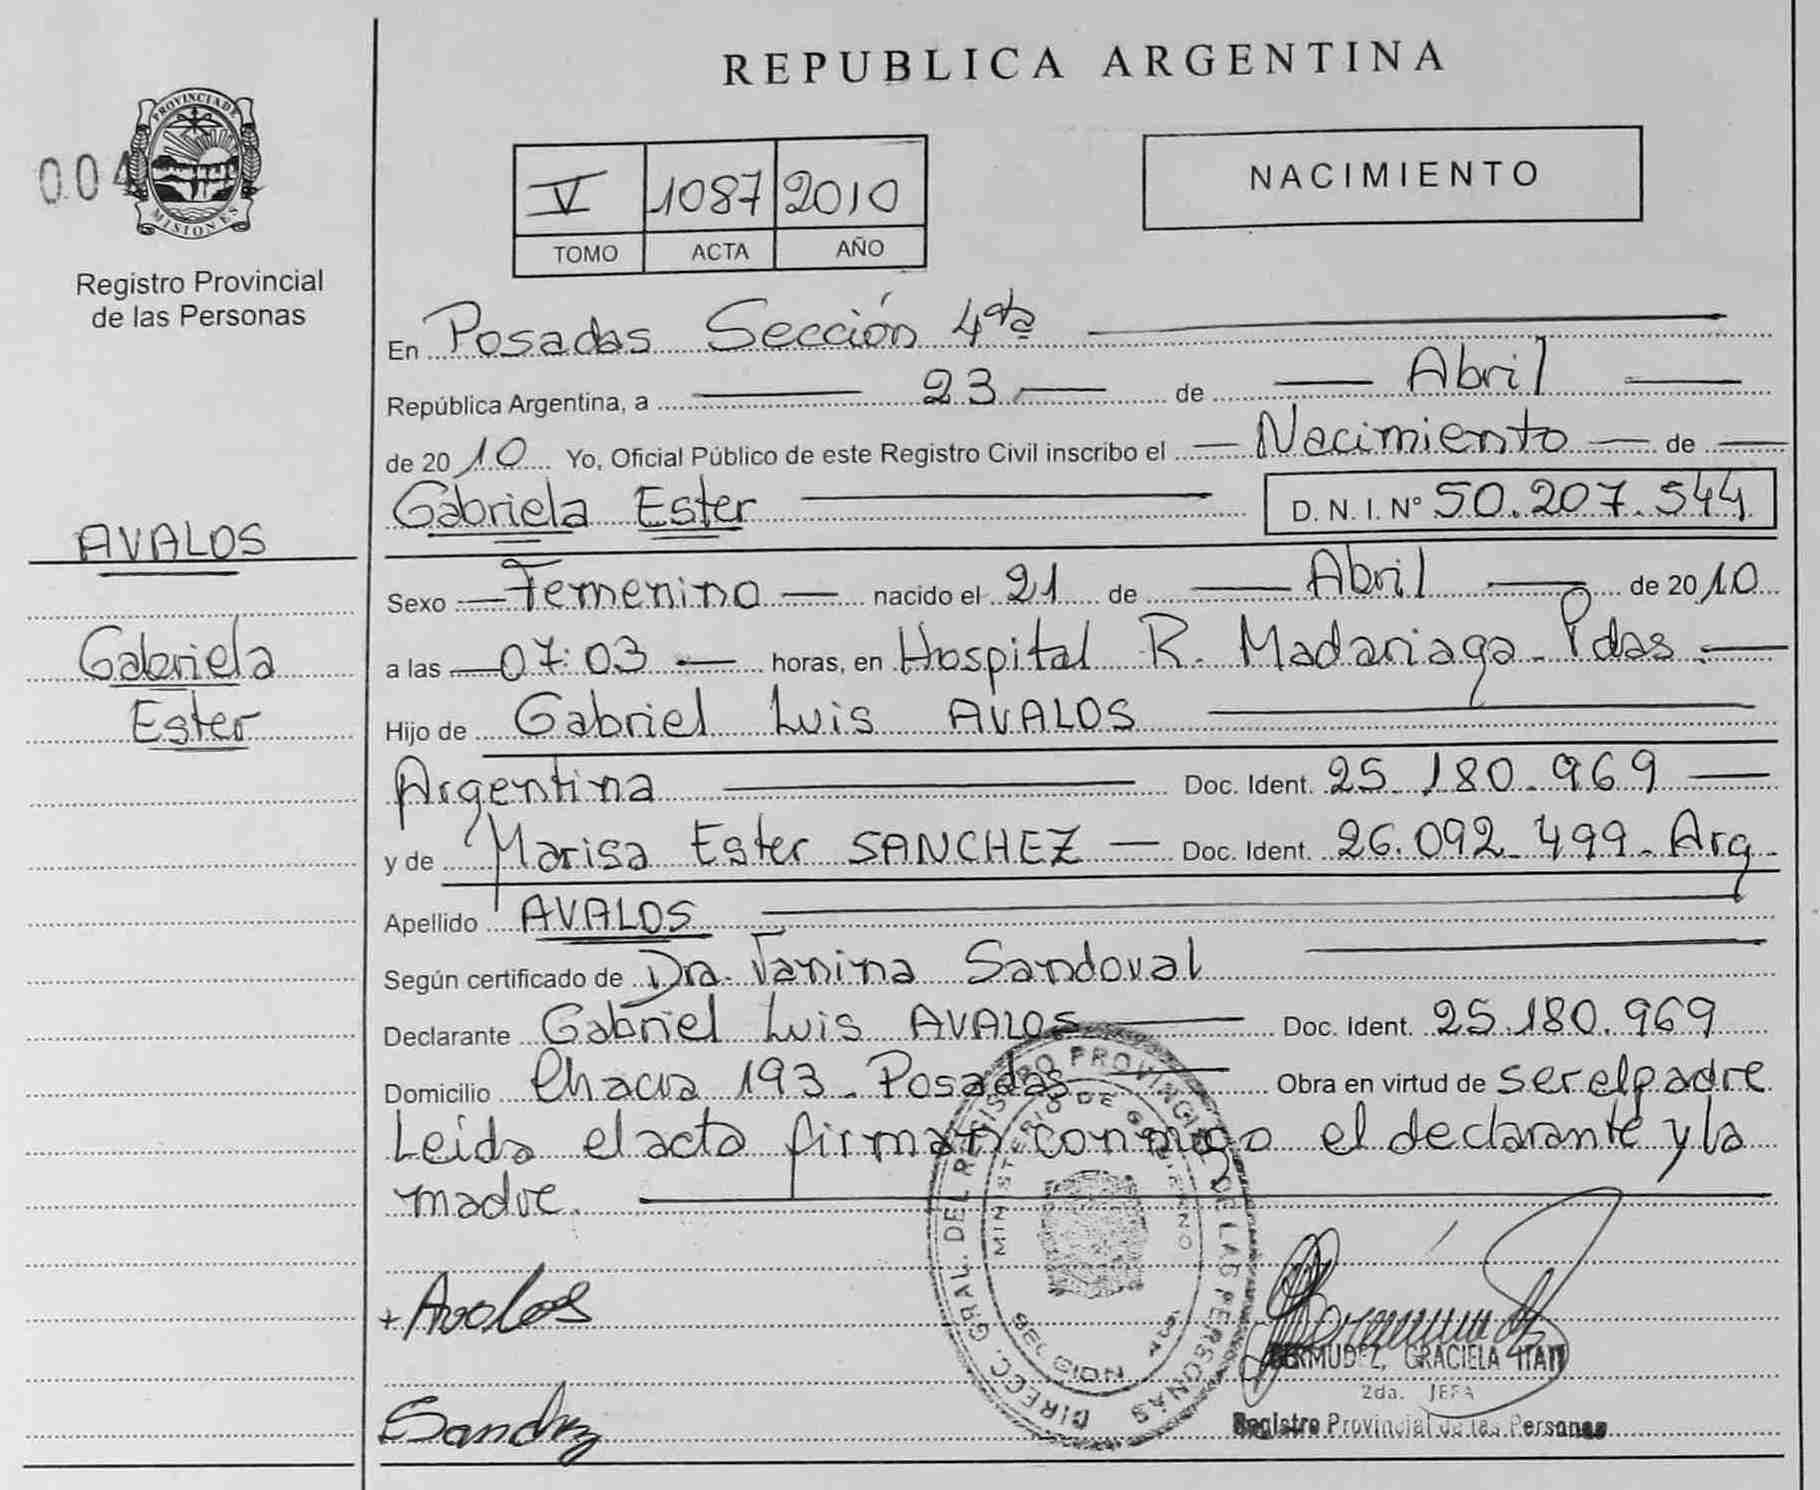 REPUBLICA ARGENTINA
PROVINCIA DE
MISIONES
004
Registro Provincial
de las Personas
V 1087 2010
TOMO ACTA AÑO
NACIMIENTO
En Posadas Sección 4ta
República Argentina, a 23 de Abril
de 2010 Yo, Oficial Público de este Registro Civil inscribo el Nacimiento de
Gabriela Ester D. N. I. Nº 50.207.544
AVALOS
Gabriela
Ester
Sexo Femenino nacido el 21 de Abril de 2010
a las 07:03 horas, en Hospital R. Madariaga - Pdas.
Hijo de Gabriel Luis AVALOS
Argentina Doc. Ident. 25.180.969
y de Marisa Ester SANCHEZ Doc. Ident. 26.092.499 - Arg.
Apellido AVALOS
Según certificado de Dra. Vanina Sandoval
Declarante Gabriel Luis AVALOS Doc. Ident. 25.180.969
Domicilio 193 - Posadas Obra en virtud de ser el padre
Leida el acta firman conmigo el declarante y la
madre.
Avalos
DIRECC. GRAL. DEL REGISTRO PROVINCIAL DE LAS PERSONAS
MINISTERIO DE GOBIERNO
BERMUDEZ, GRACIELA ITATI
2da. JEFA
Registro Provincial de las Personas